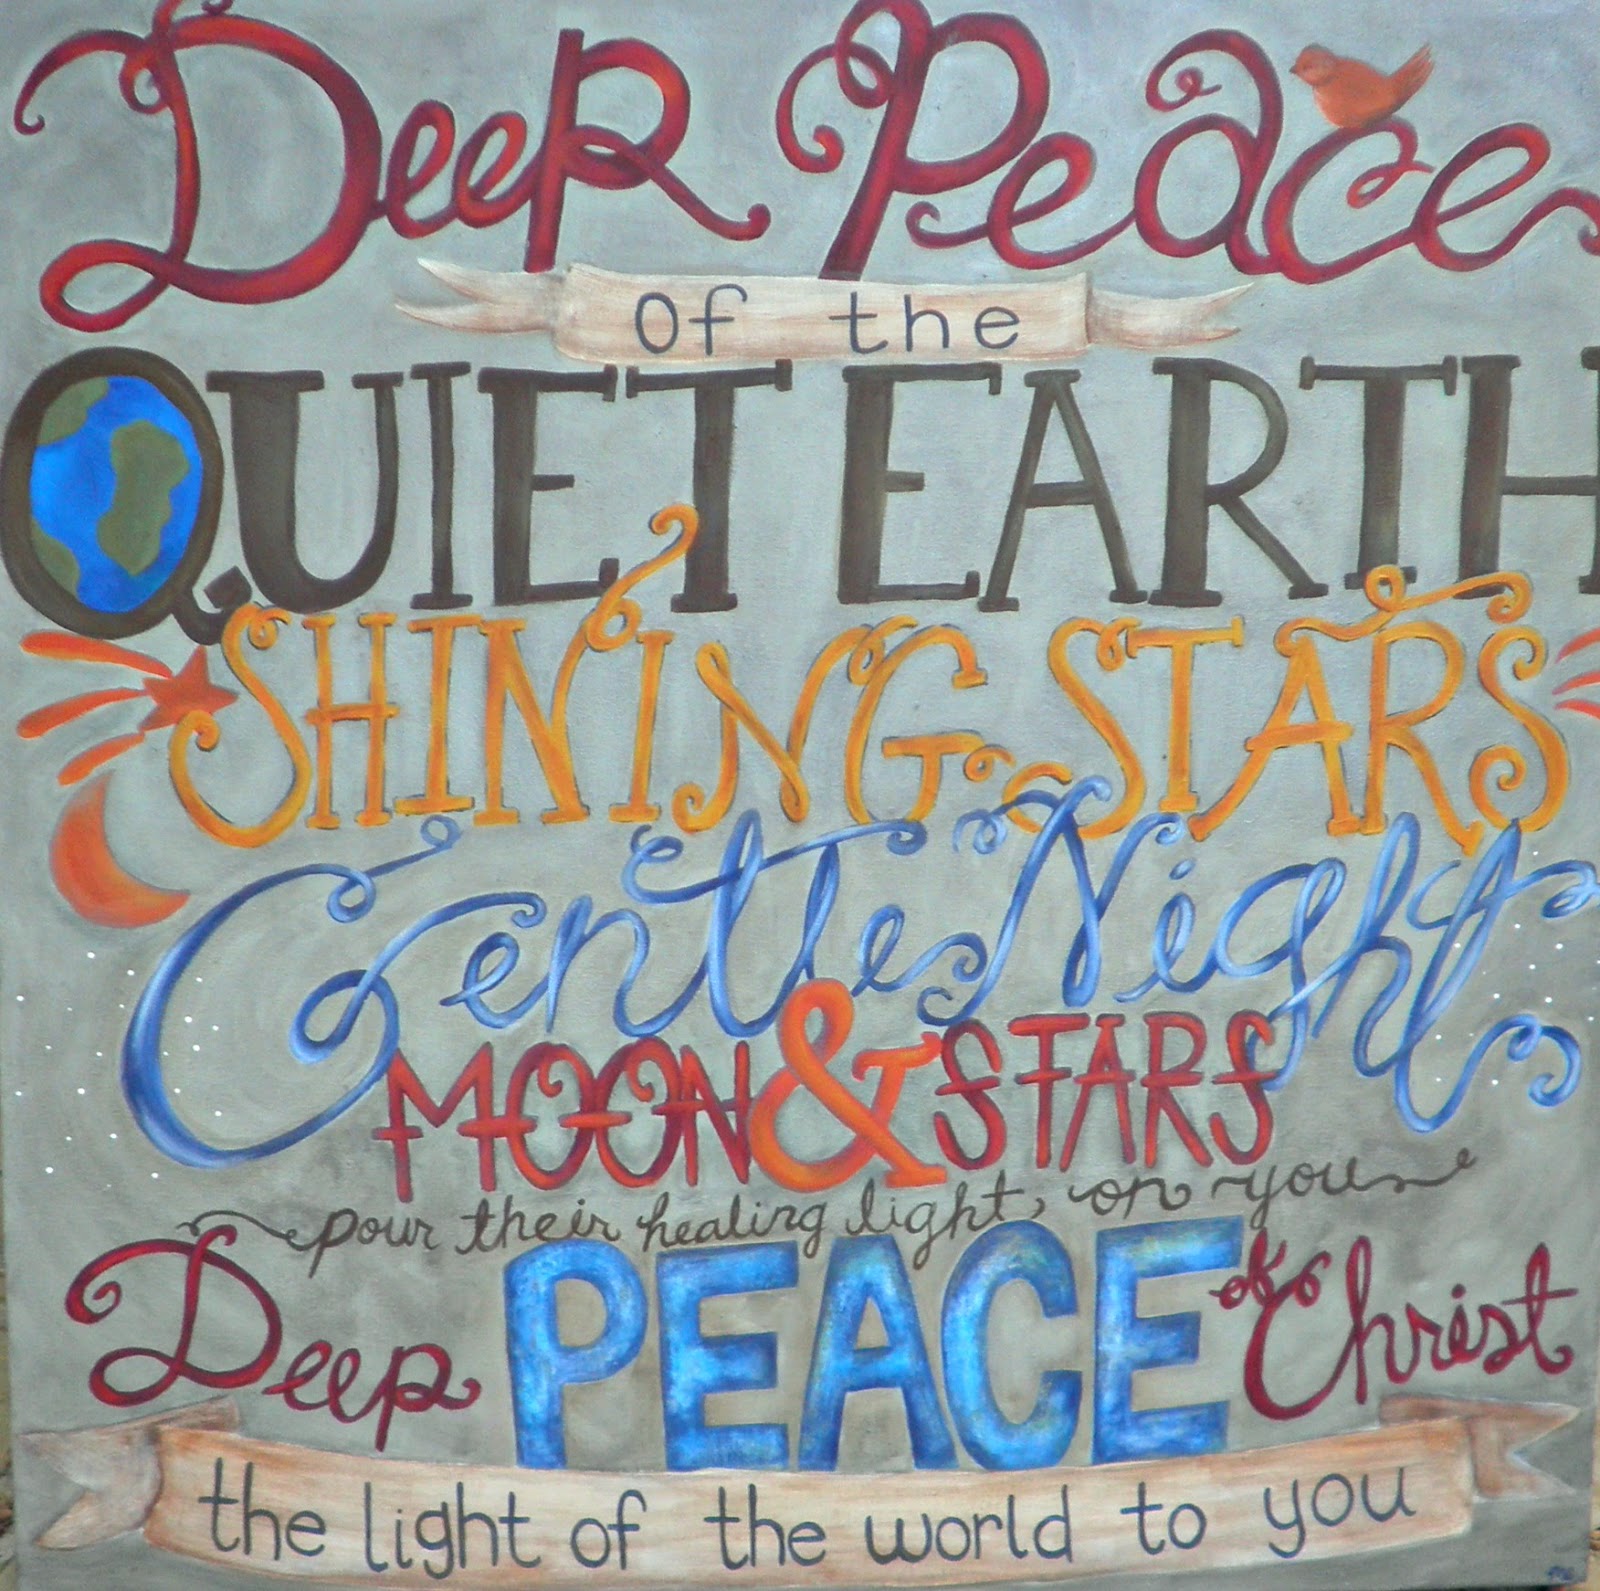 Deep Peace
of the
QUIET EARTH
SHINING STARS
Gentle Night
MOON & STARS
pour their healing light, on you
Deep PEACE of Christ
the light of the world to you